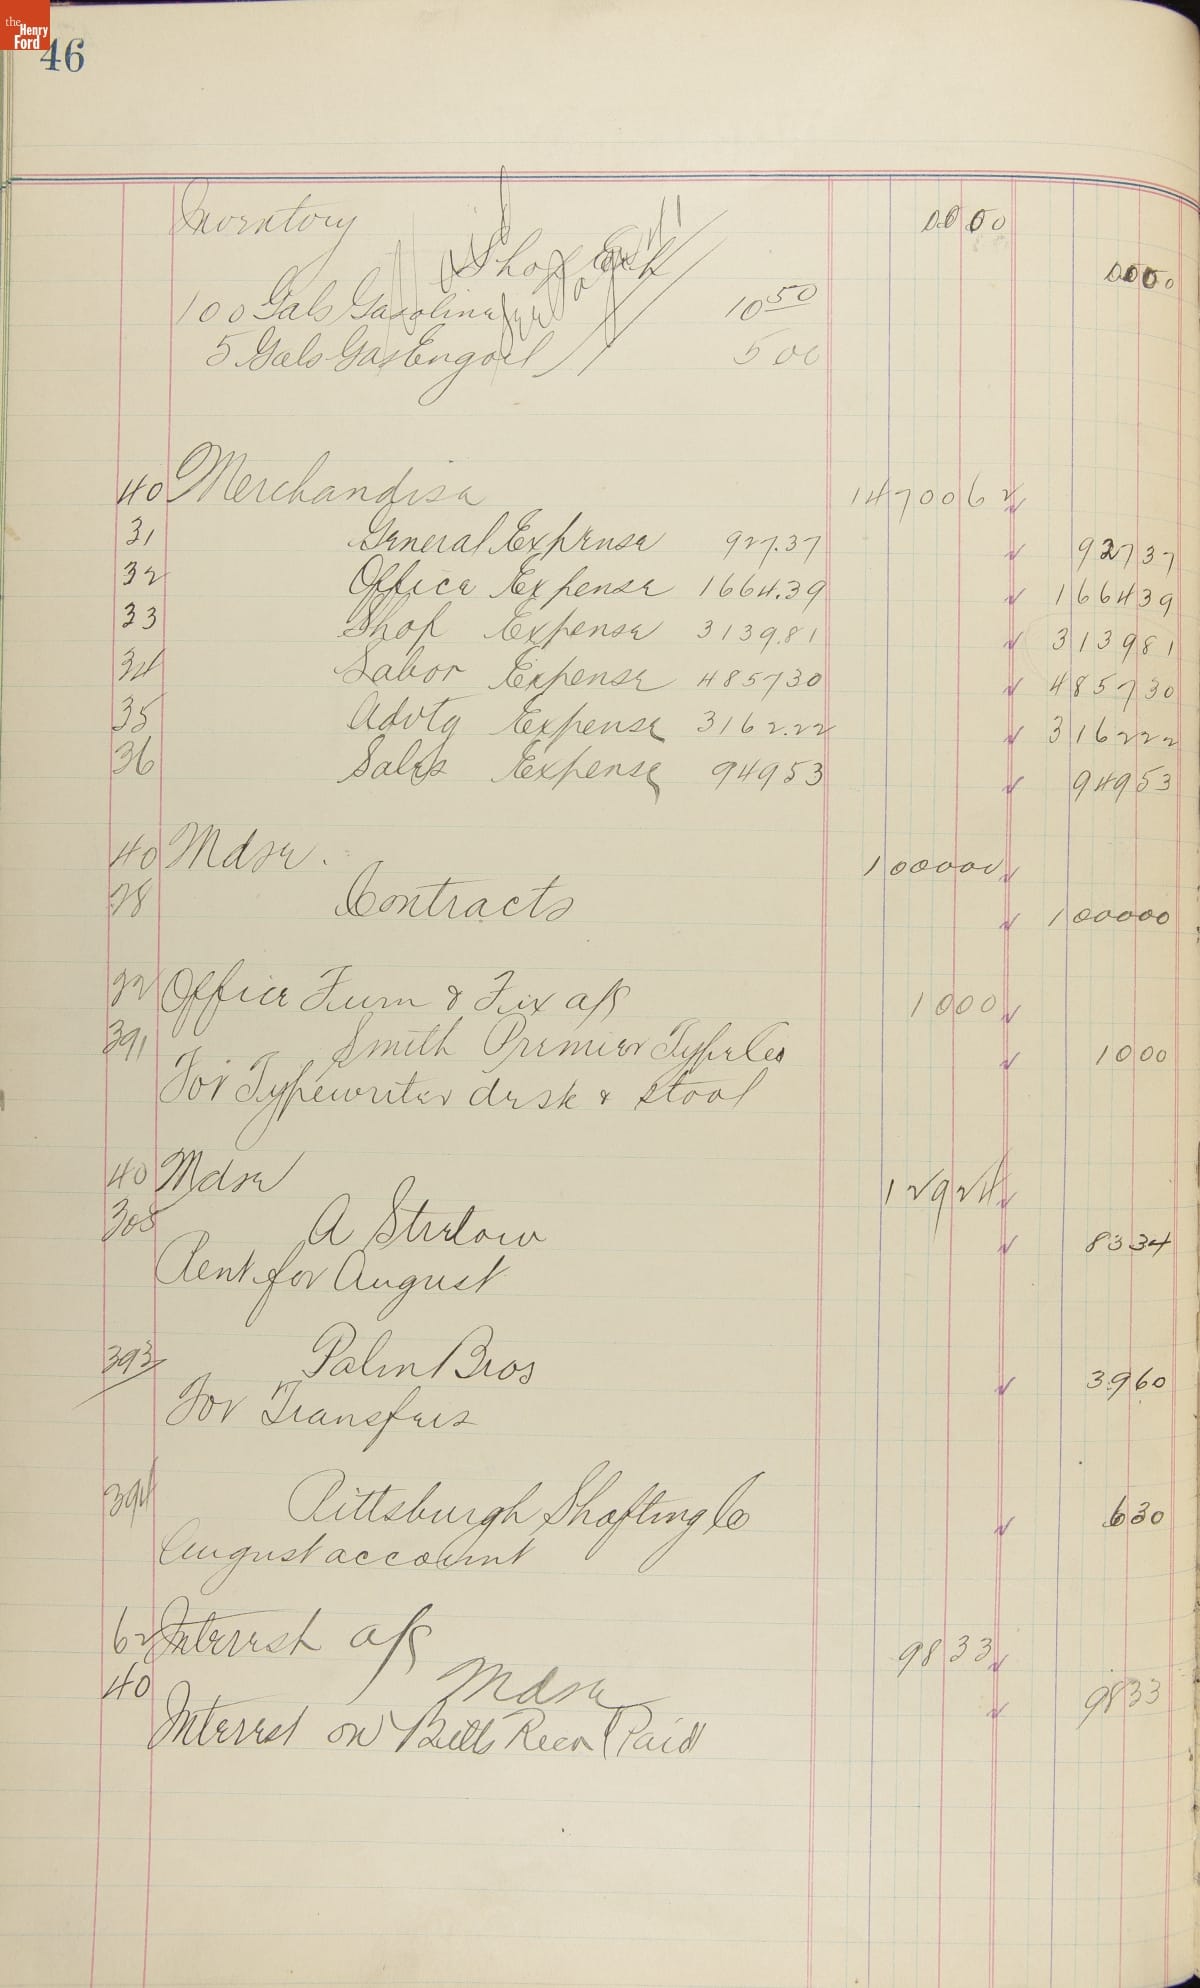 the Henry Ford
46
Inventory 0000
Shop 0000
100 Gals Gasoline 10 50
5 Gals Gas Eng oil 5 00
40 Merchandise 14700 62
31 General Expense 927.37 927 37
32 Office Expense 1664.39 1664 39
33 Shop Expense 3139.81 3139 81
34 Labor Expense 4857 30 4857 30
35 Advtg Expense 3162.22 3162 22
36 Sales Expense 949 53 949 53
40 Mdse. 1000 00
28 Contracts 1000 00
22 Office Furn & Fix a/c 10 00
391 Smith Premier Type Co 10 00
For Typewriter desk & stool
40 Mdse 129 24
305 A Strelow 83 34
Rent for August
393 Palm Bros 39 60
For Transfers
394 Pittsburgh Shafting Co 6 30
August account
62 Interest a/c 98 33
40 Mdse 98 33
Interest on Bills Paid